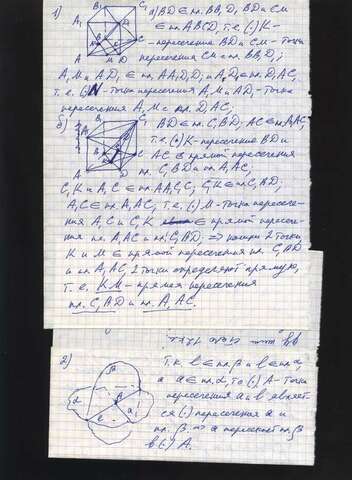 1) а) BD ∈ пл. BB₁D, BD и CM
∈ пл. ABCD, т.е. (·) K -
- пересечение BD и CM - точка
пересечения CM и пл. BB₁D₁;
A₁M и AD₁ ∈ пл. AA₁D₁D; и A₁D ∈ пл. D₁AC,
т.е. (·) N - точка пересечения A₁M и AD₁ - точка
пересечения A₁M с пл. D₁AC,
б) BD ∈ пл. C₁BD; AC ∈ пл. A₁AC,
т.е. (·) K - пересечение BD и
AC ∈ прямой пересечения
пл. C₁BD и пл. A₁AC,
C₁K и A₁C ∈ пл. AA₁C₁C, C₁K ∈ пл. C₁BD;
A₁C ∈ пл. A₁AC, т.е. (·) M - точка пересече-
ния A₁C и C₁K ∈ прямой пересече-
ния пл. A₁AC и пл. C₁BD; => нашли 2 точки
K и M ∈ прямой пересечения пл. C₁BD
и пл. A₁AC, 2 точки определяют прямую,
т.е. KM - прямая пересечения
пл. C₁BD и пл. A₁AC.
2) Т.к. b ∈ пл. β и b ∈ пл. α,
а a ∈ пл. α, то (·) A - точка
пересечения a и b является
(·) пересечения a и
пл. β => a пересекает пл. β
в (·) A.